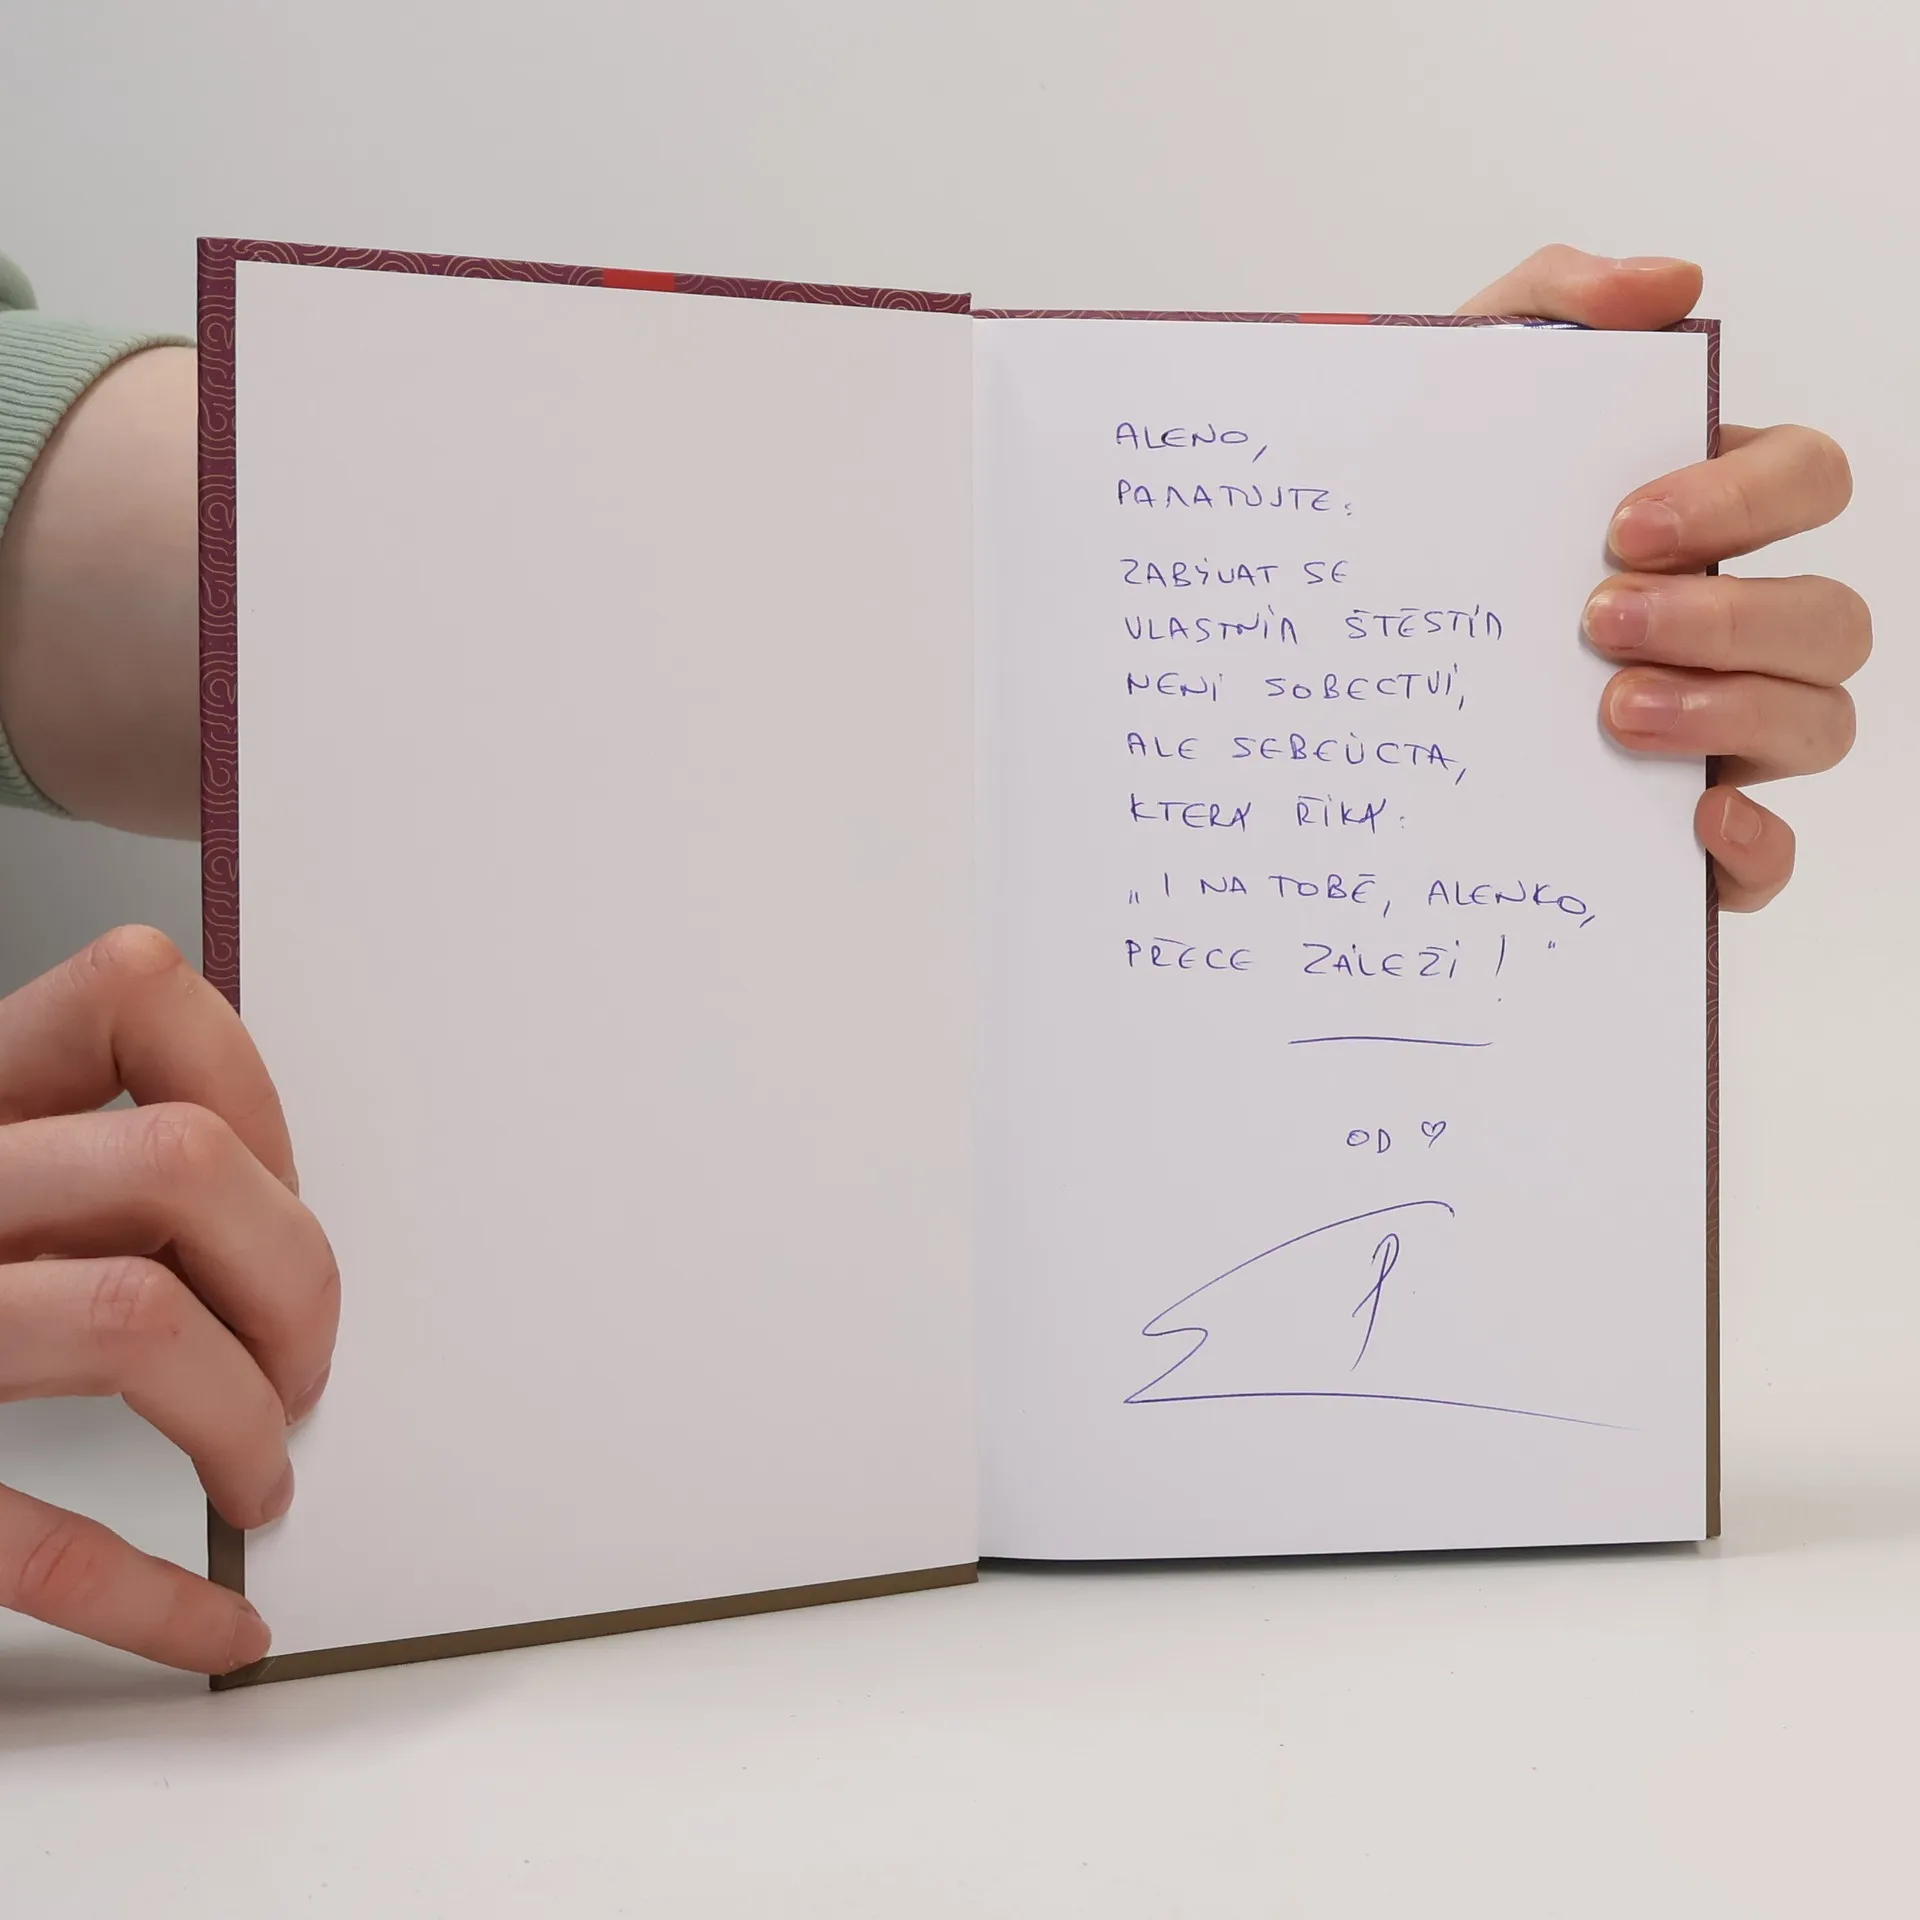 ALENO,
PAMATUJTE:
ZABÝVAT SE
VLASTNÍM ŠTĚSTÍM
NENÍ SOBECTVÍ,
ALE SEBEÚCTA,
KTERÁ ŘÍKÁ:
„I NA TOBĚ, ALENKO,
PŘECE ZÁLEŽÍ!“
OD ♡